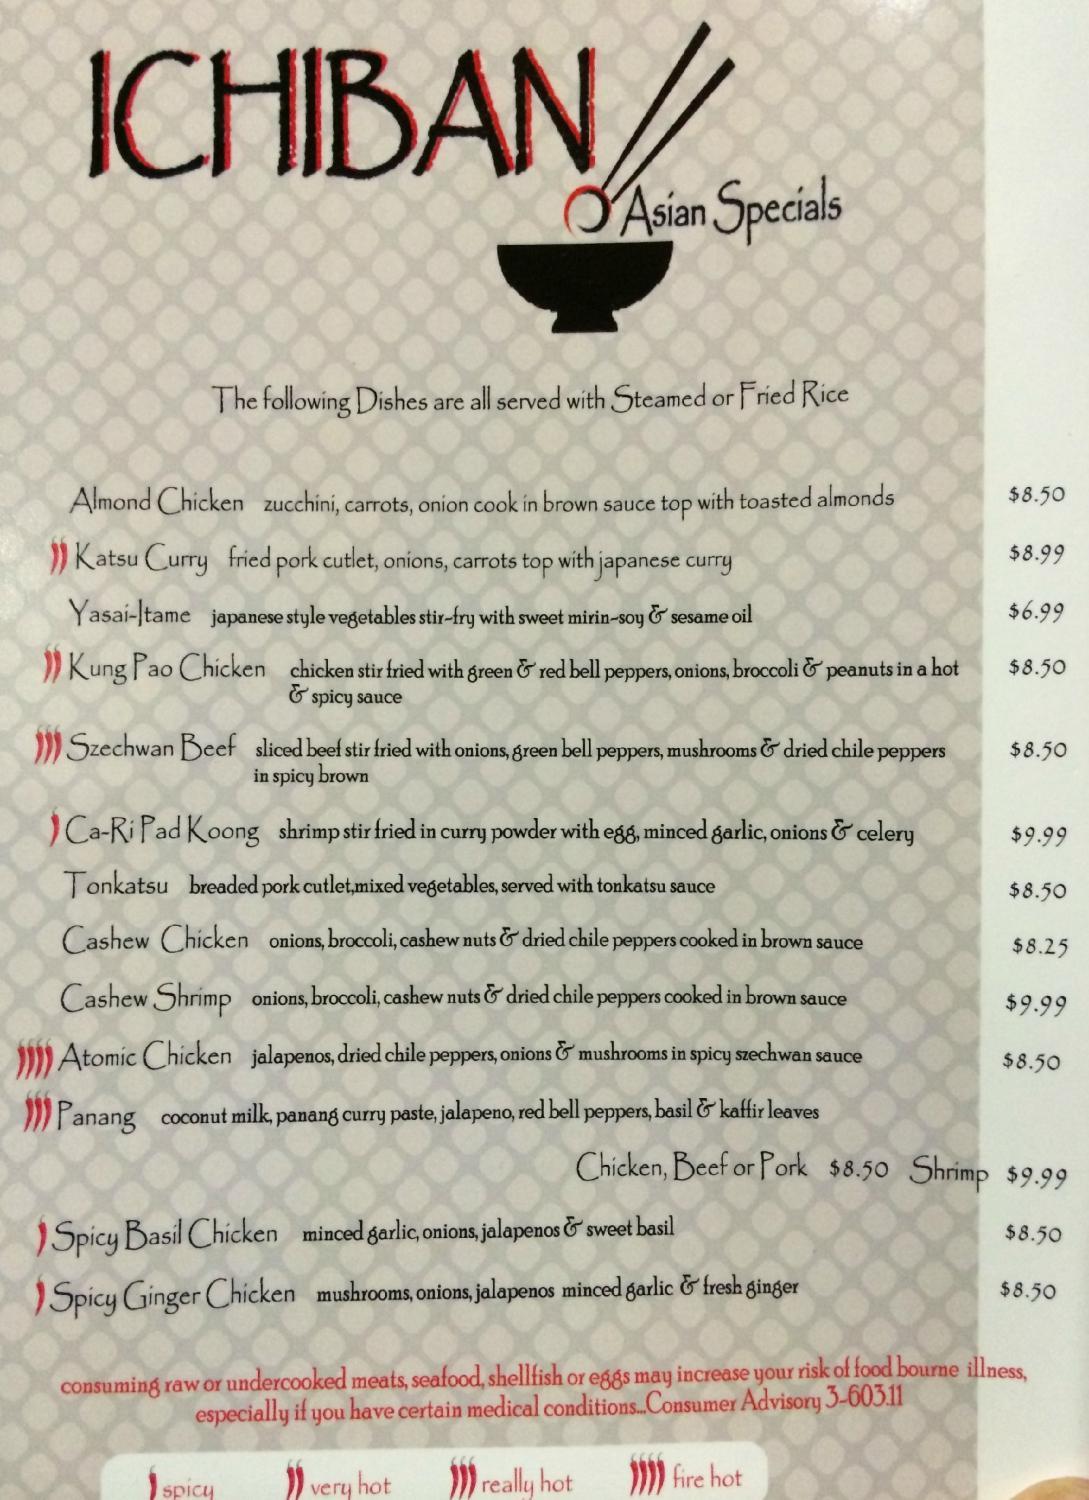 ICHIBAN
Asian Specials
The following Dishes are all served with Steamed or Fried Rice
Almond Chicken zucchini, carrots, onion cook in brown sauce top with toasted almonds $8.50
Katsu Curry fried pork cutlet, onions, carrots top with japanese curry $8.99
Yasai-Itame japanese style vegetables stir-fry with sweet mirin-soy & sesame oil $6.99
Kung Pao Chicken chicken stir fried with green & red bell peppers, onions, broccoli & peanuts in a hot $8.50
& spicy sauce
Szechwan Beef sliced beef stir fried with onions, green bell peppers, mushrooms & dried chile peppers $8.50
in spicy brown
Ca-Ri Pad Koong shrimp stir fried in curry powder with egg, minced garlic, onions & celery $9.99
Tonkatsu breaded pork cutlet,mixed vegetables, served with tonkatsu sauce $8.50
Cashew Chicken onions, broccoli, cashew nuts & dried chile peppers cooked in brown sauce $8.25
Cashew Shrimp onions, broccoli, cashew nuts & dried chile peppers cooked in brown sauce $9.99
Atomic Chicken jalapenos, dried chile peppers, onions & mushrooms in spicy szechwan sauce $8.50
Panang coconut milk, panang curry paste, jalapeno, red bell peppers, basil & kaffir leaves
Chicken, Beef or Pork $8.50 Shrimp $9.99
Spicy Basil Chicken minced garlic, onions, jalapenos & sweet basil $8.50
Spicy Ginger Chicken mushrooms, onions, jalapenos minced garlic & fresh ginger $8.50
consuming raw or undercooked meats, seafood, shellfish or eggs may increase your risk of food bourne illness,
especially if you have certain medical conditions...Consumer Advisory 3-603.11
spicy very hot really hot fire hot